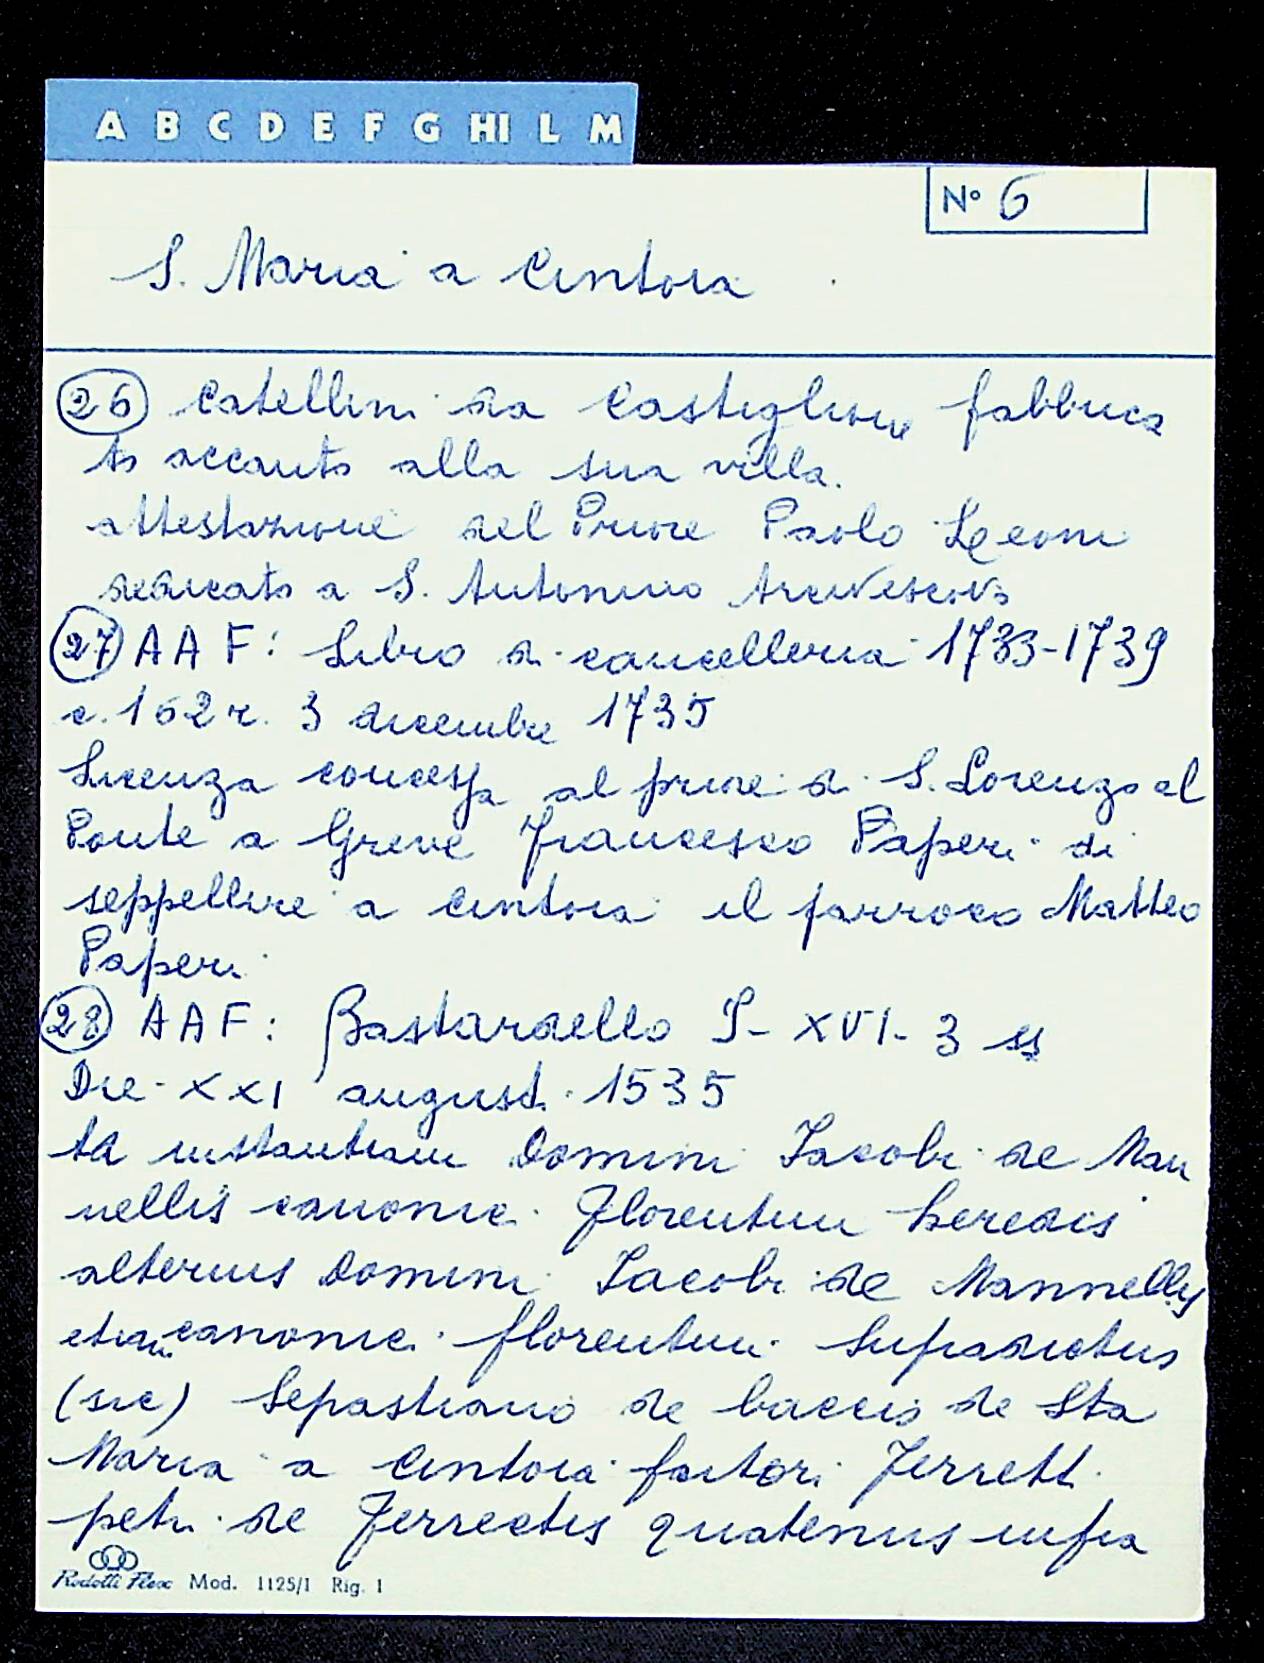 A B C D E F G HI L M
N° 6
S. Maria a Cintoia
26 Catellini da Castiglione fabbrica
to accanto alla sua villa.
attestazione del Priore Paolo Leoni
dedicato a S. Antonino Arcivescovo
27 AAF: Libro di cancelleria 1733-1739
c. 162 r. 3 dicembre 1735
Licenza concessa al priore di S. Lorenzo al
Ponte a Greve Francesco Paperi di
seppellire a Cintoia il parroco Matteo
Paperi
28 AAF: Bastardello S- XVI- 3 ss
Die XXI august. 1535
ta instantiam Domini Jacobi de Man
nellis canonic. Florentin heredis
alterius Domini Jacobi de Mannellis
etiam canonic. florentin. supradictus
(sic) Sepastiano de baccis de Sta
Maria a Cintoia factori Ferrett.
petri de Ferrectis quatenus infra
Rodotti Flex Mod. 1125/1 Rig. 1